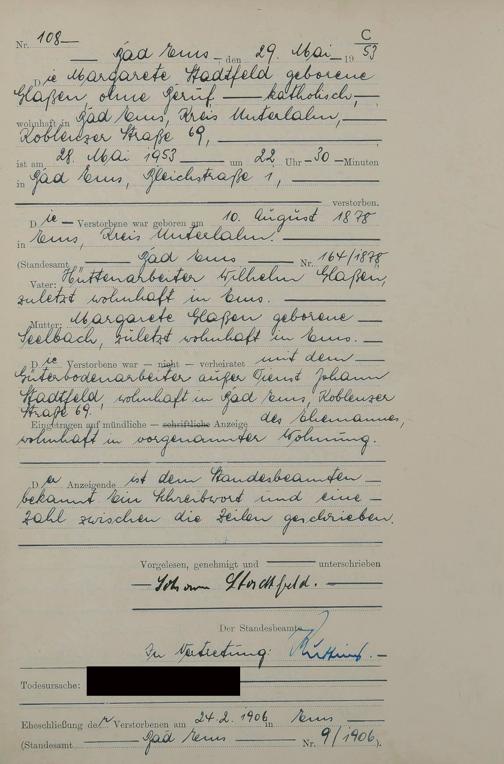 C
Nr. 108
Bad Ems, den 29. Mai 19 53
Die Margarete Stadtfeld geborene
Glaßen, ohne Beruf katholisch,
wohnhaft in Bad Ems, Kreis Unterlahn,
Koblenzer Straße 69,
ist am 28. Mai 1953 um 22 Uhr 30 Minuten
in Bad Ems, Bleichstraße 1,
verstorben.
Die Verstorbene war geboren am 10. August 1878
in Ems, Kreis Unterlahn.
(Standesamt Bad Ems Nr. 164/1878
Vater: Hüttenarbeiter Wilhelm Glaßen,
zuletzt wohnhaft in Ems.
Mutter: Margarete Glaßen geborene
Seelbach, zuletzt wohnhaft in Ems.
Die Verstorbene war — nicht — verheiratet mit dem
Güterbodenarbeiter außer Dienst Johann
Stadtfeld, wohnhaft in Bad Ems, Koblenzer
Straße 69.
Eingetragen auf mündliche — schriftliche Anzeige des Ehemannes,
wohnhaft in vorgenannter Wohnung.
Der Anzeigende ist dem Standesbeamten
bekannt Ein Schreibwort und eine
Zahl zwischen die Zeilen geschrieben.
Vorgelesen, genehmigt und unterschrieben
Johann Stadtfeld.
Der Standesbeamte
In Vertretung:
Todesursache:
Eheschließung der Verstorbenen am 24.2.1906 in Ems
(Standesamt Bad Ems Nr. 9/1906).